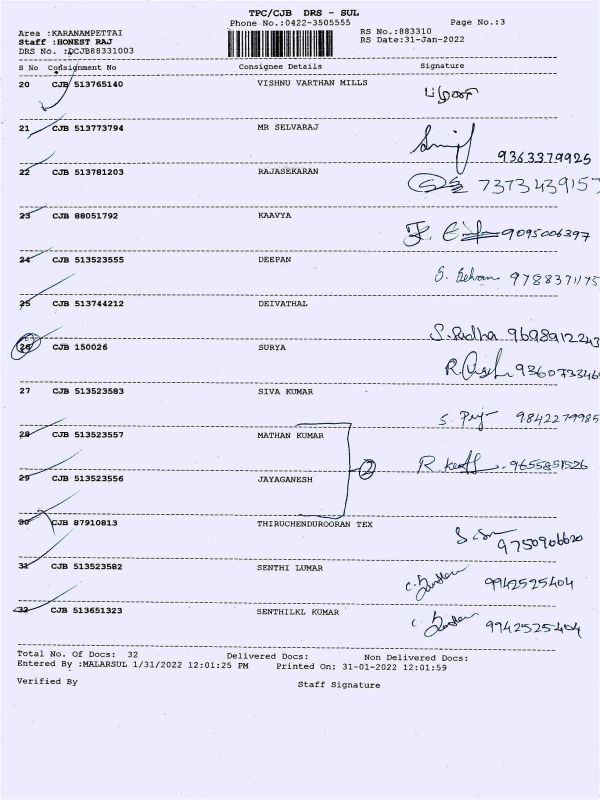 TPC/CJB DRS - SUL
Phone No.:0422-3505555 Page No.:3
Area :KARANAMPETTAI RS No.:883310
Staff :HONEST RAJ RS Date:31-Jan-2022
DRS No. :DCJB88331003
S No Consignment No Consignee Details Signature
20 CJB 513765140 VISHNU VARTHAN MILLS
21 CJB 513773794 MR SELVARAJ
9363379925
22 CJB 513781203 RAJASEKARAN 7373439157
23 CJB 88051792 KAAVYA 9095006397
24 CJB 513523555 DEEPAN
9788371175
25 CJB 513744212 DEIVATHAL
S. Radha 9698912243
26 CJB 150026 SURYA
9360733460
27 CJB 513523583 SIVA KUMAR
9842279985
28 CJB 513523557 MATHAN KUMAR
2 9655851526
29 CJB 513523556 JAYAGANESH
30 CJB 87910813 THIRUCHENDUROORAN TEX
9750906620
31 CJB 513523582 SENTHI LUMAR
9942525404
32 CJB 513651323 SENTHILKL KUMAR
9942525404
Total No. Of Docs: 32 Delivered Docs: Non Delivered Docs:
Entered By :MALARSUL 1/31/2022 12:01:25 PM Printed On: 31-01-2022 12:01:59
Verified By Staff Signature